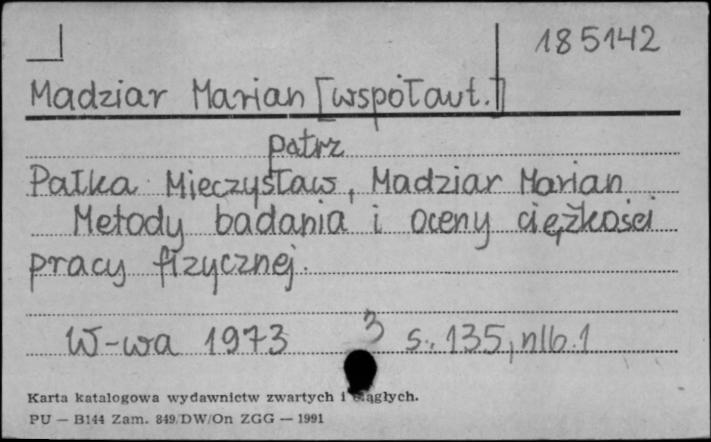 185142
Madziar Marian [współaut.]
patrz
Pałka Mieczysław, Madziar Marian
Metody badania i oceny ciężkości
pracy fizycznej.
W-wa 1973 3 s. 135, nlb. 1
Karta katalogowa wydawnictw zwartych i ciągłych.
PU — B144 Zam. 849/DW/On ZGG — 1991